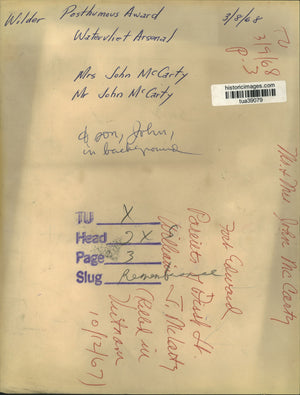 Wilder Posthumous Award 3/8/68
Watervliet Arsenal
Mrs John McCarty
Mr John McCarty
of son, John,
in background
TU
3/9/68
P. 3
historicimages.com
tua39079
Mr & Mrs John McCarty
TU X
Head 2X
Page 3
Slug Remembrance
Fort Edward
Parents of First Lt.
William J. McCarty
(killed in
Vietnam
10/12/67)